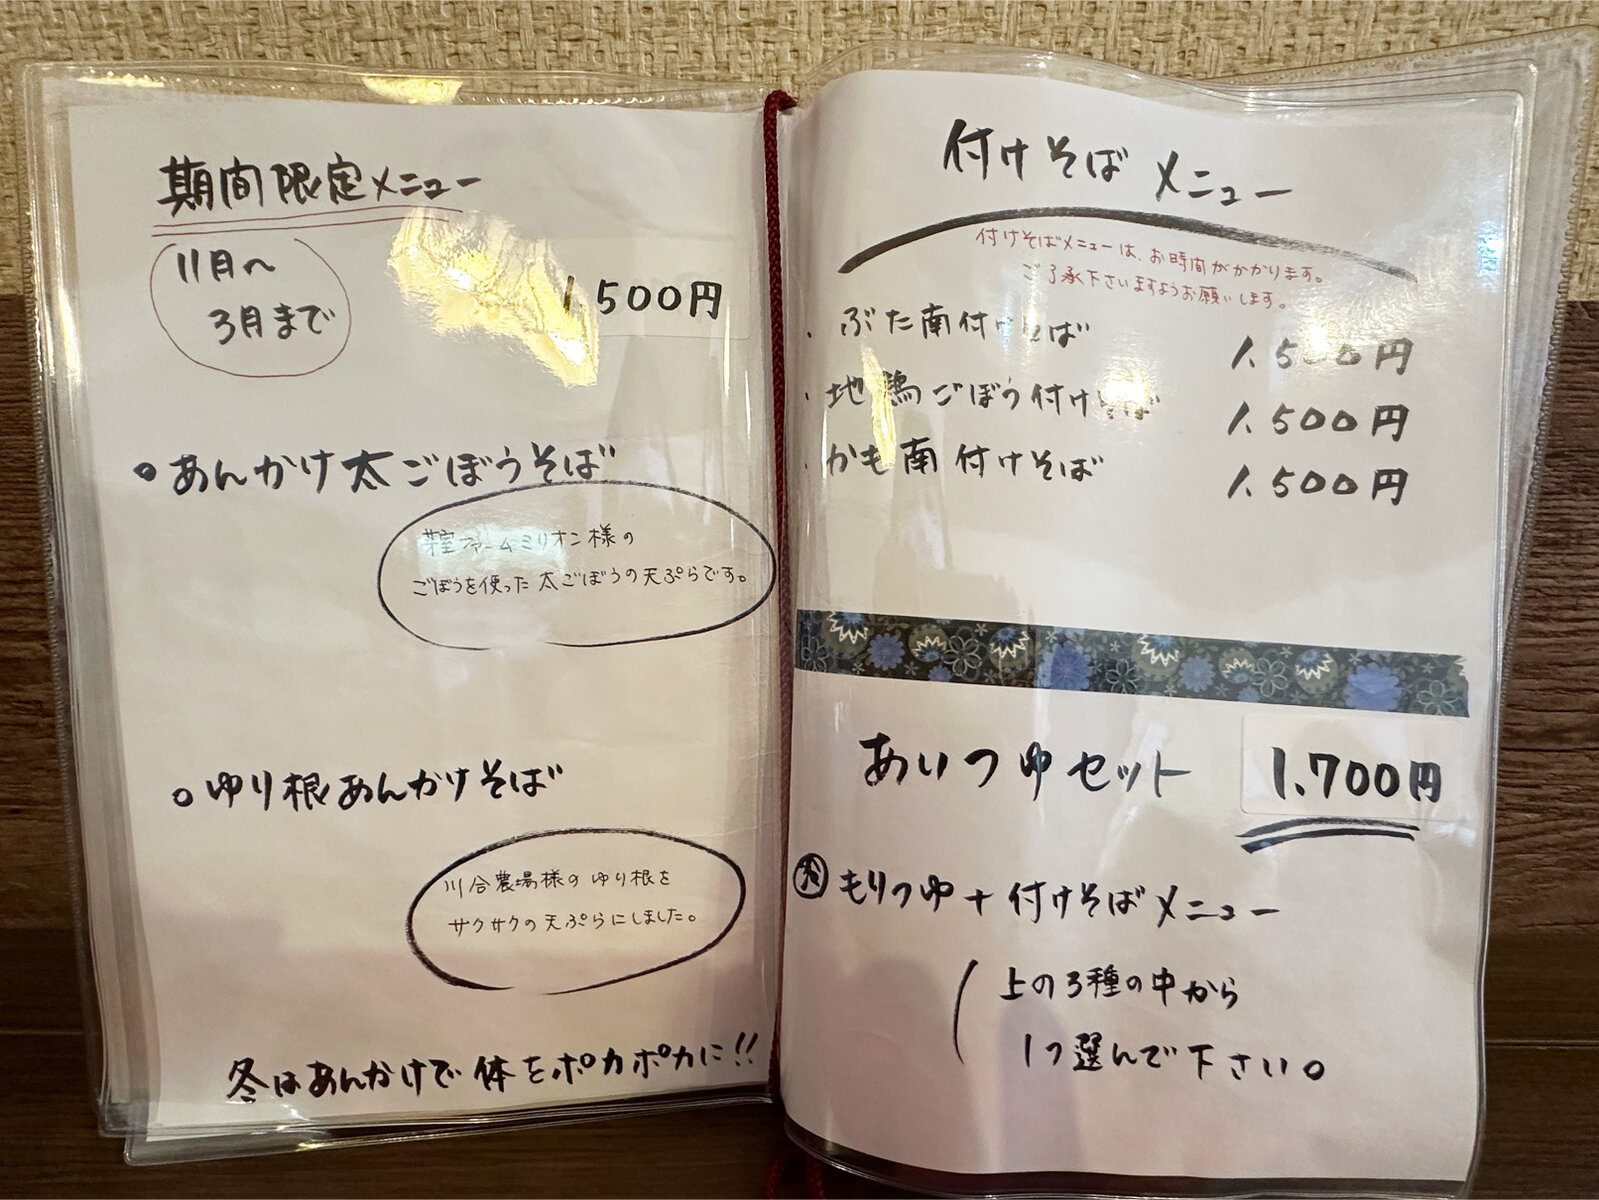 期間限定メニュー
11月〜
3月まで
1.500円
あんかけ太ごぼうそば
芽室ファームミリオン様の
ごぼうを使った太ごぼうの天ぷらです。
ゆり根あんかけそば
川合農場様のゆり根を
サクサクの天ぷらにしました。
冬はあんかけで体をポカポカに!!
付けそばメニュー
付けそばメニューは、お時間がかかります。
ご了承下さいますようお願いします。
・ぶた南付けそば 1.500円
・地鶏ごぼう付けそば 1.500円
・かも南付けそば 1.500円
あいつゆセット 1.700円
もりつゆ+付けそばメニュー
(上の3種の中から
1つ選んで下さい。